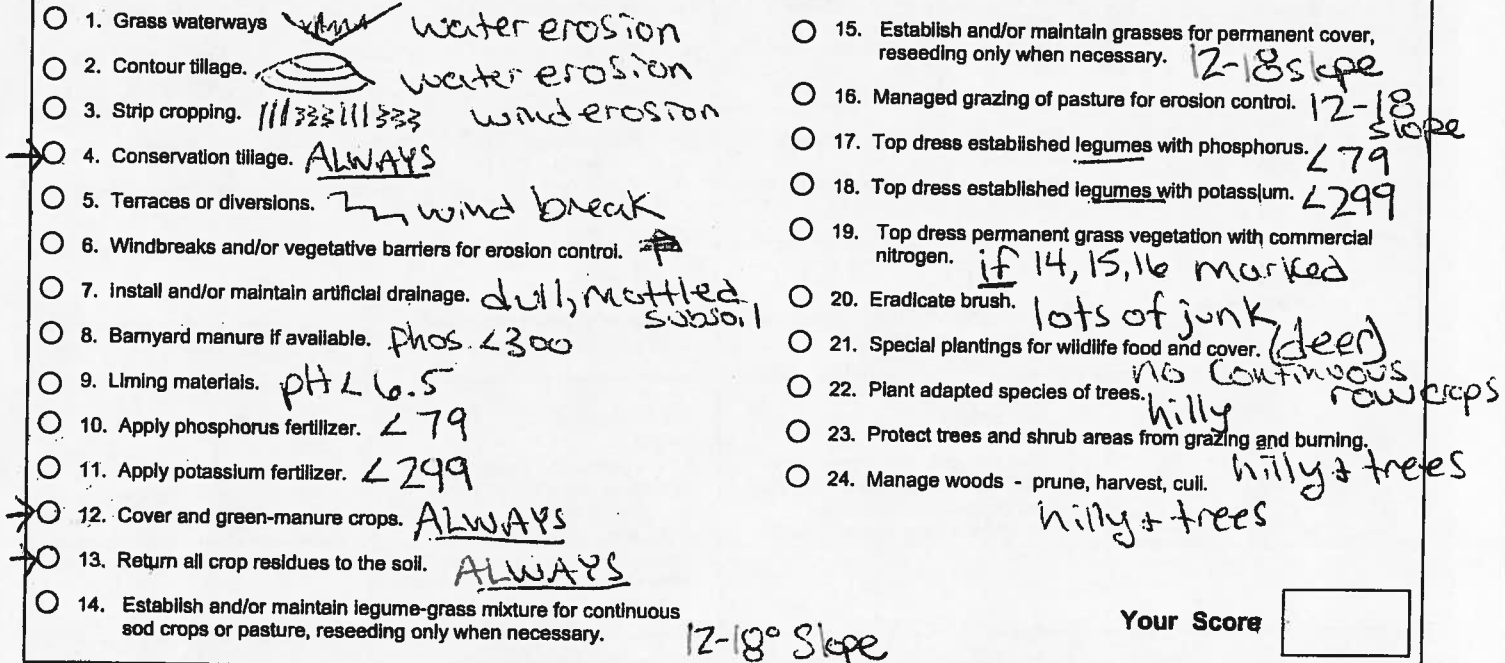 1. Grass waterways water erosion
2. Contour tillage. water erosion
3. Strip cropping. wind erosion
4. Conservation tillage. ALWAYS
5. Terraces or diversions. wind break
6. Windbreaks and/or vegetative barriers for erosion control.
7. Install and/or maintain artificial drainage. dull, mottled
subsoil
8. Barnyard manure if available. phos. <300
9. Liming materials. pH < 6.5
10. Apply phosphorus fertilizer. <79
11. Apply potassium fertilizer. <299
12. Cover and green-manure crops. ALWAYS
13. Return all crop residues to the soil. ALWAYS
14. Establish and/or maintain legume-grass mixture for continuous
sod crops or pasture, reseeding only when necessary. 12-18° Slope
15. Establish and/or maintain grasses for permanent cover,
reseeding only when necessary. 12-18 slope
16. Managed grazing of pasture for erosion control. 12-18
slope
17. Top dress established legumes with phosphorus. <79
18. Top dress established legumes with potassium. <299
19. Top dress permanent grass vegetation with commercial
nitrogen. if 14, 15, 16 marked
20. Eradicate brush. lots of junk
21. Special plantings for wildlife food and cover. (deer)
no continuous
row crops
22. Plant adapted species of trees. hilly
23. Protect trees and shrub areas from grazing and burning.
hilly + trees
24. Manage woods - prune, harvest, cull.
hilly + trees
Your Score